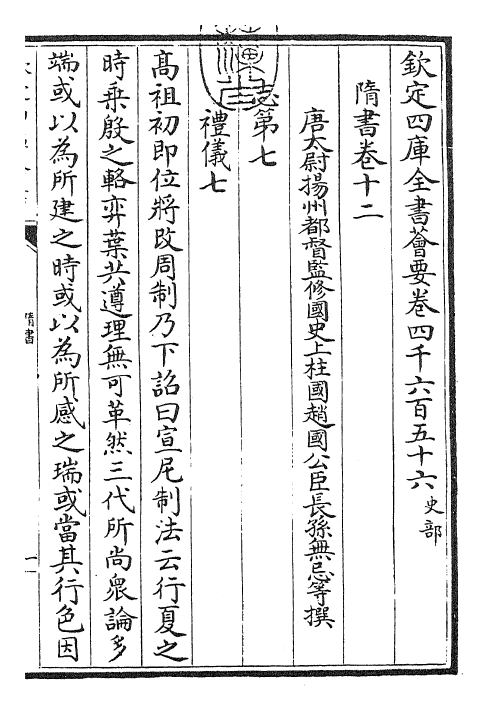 欽定四庫全書薈要卷四千六百五十六 史部
隋書卷十二
唐太尉揚州都督監修國史上柱國趙國公臣長孫無忌等撰
志第七
禮儀七
高祖初即位將改周制乃下詔曰宣尼制法云行夏之
時乗殷之輅弈葉共遵理無可革然三代所尚衆論多
端或以為所建之時或以為所感之瑞或當其行色因
隋書